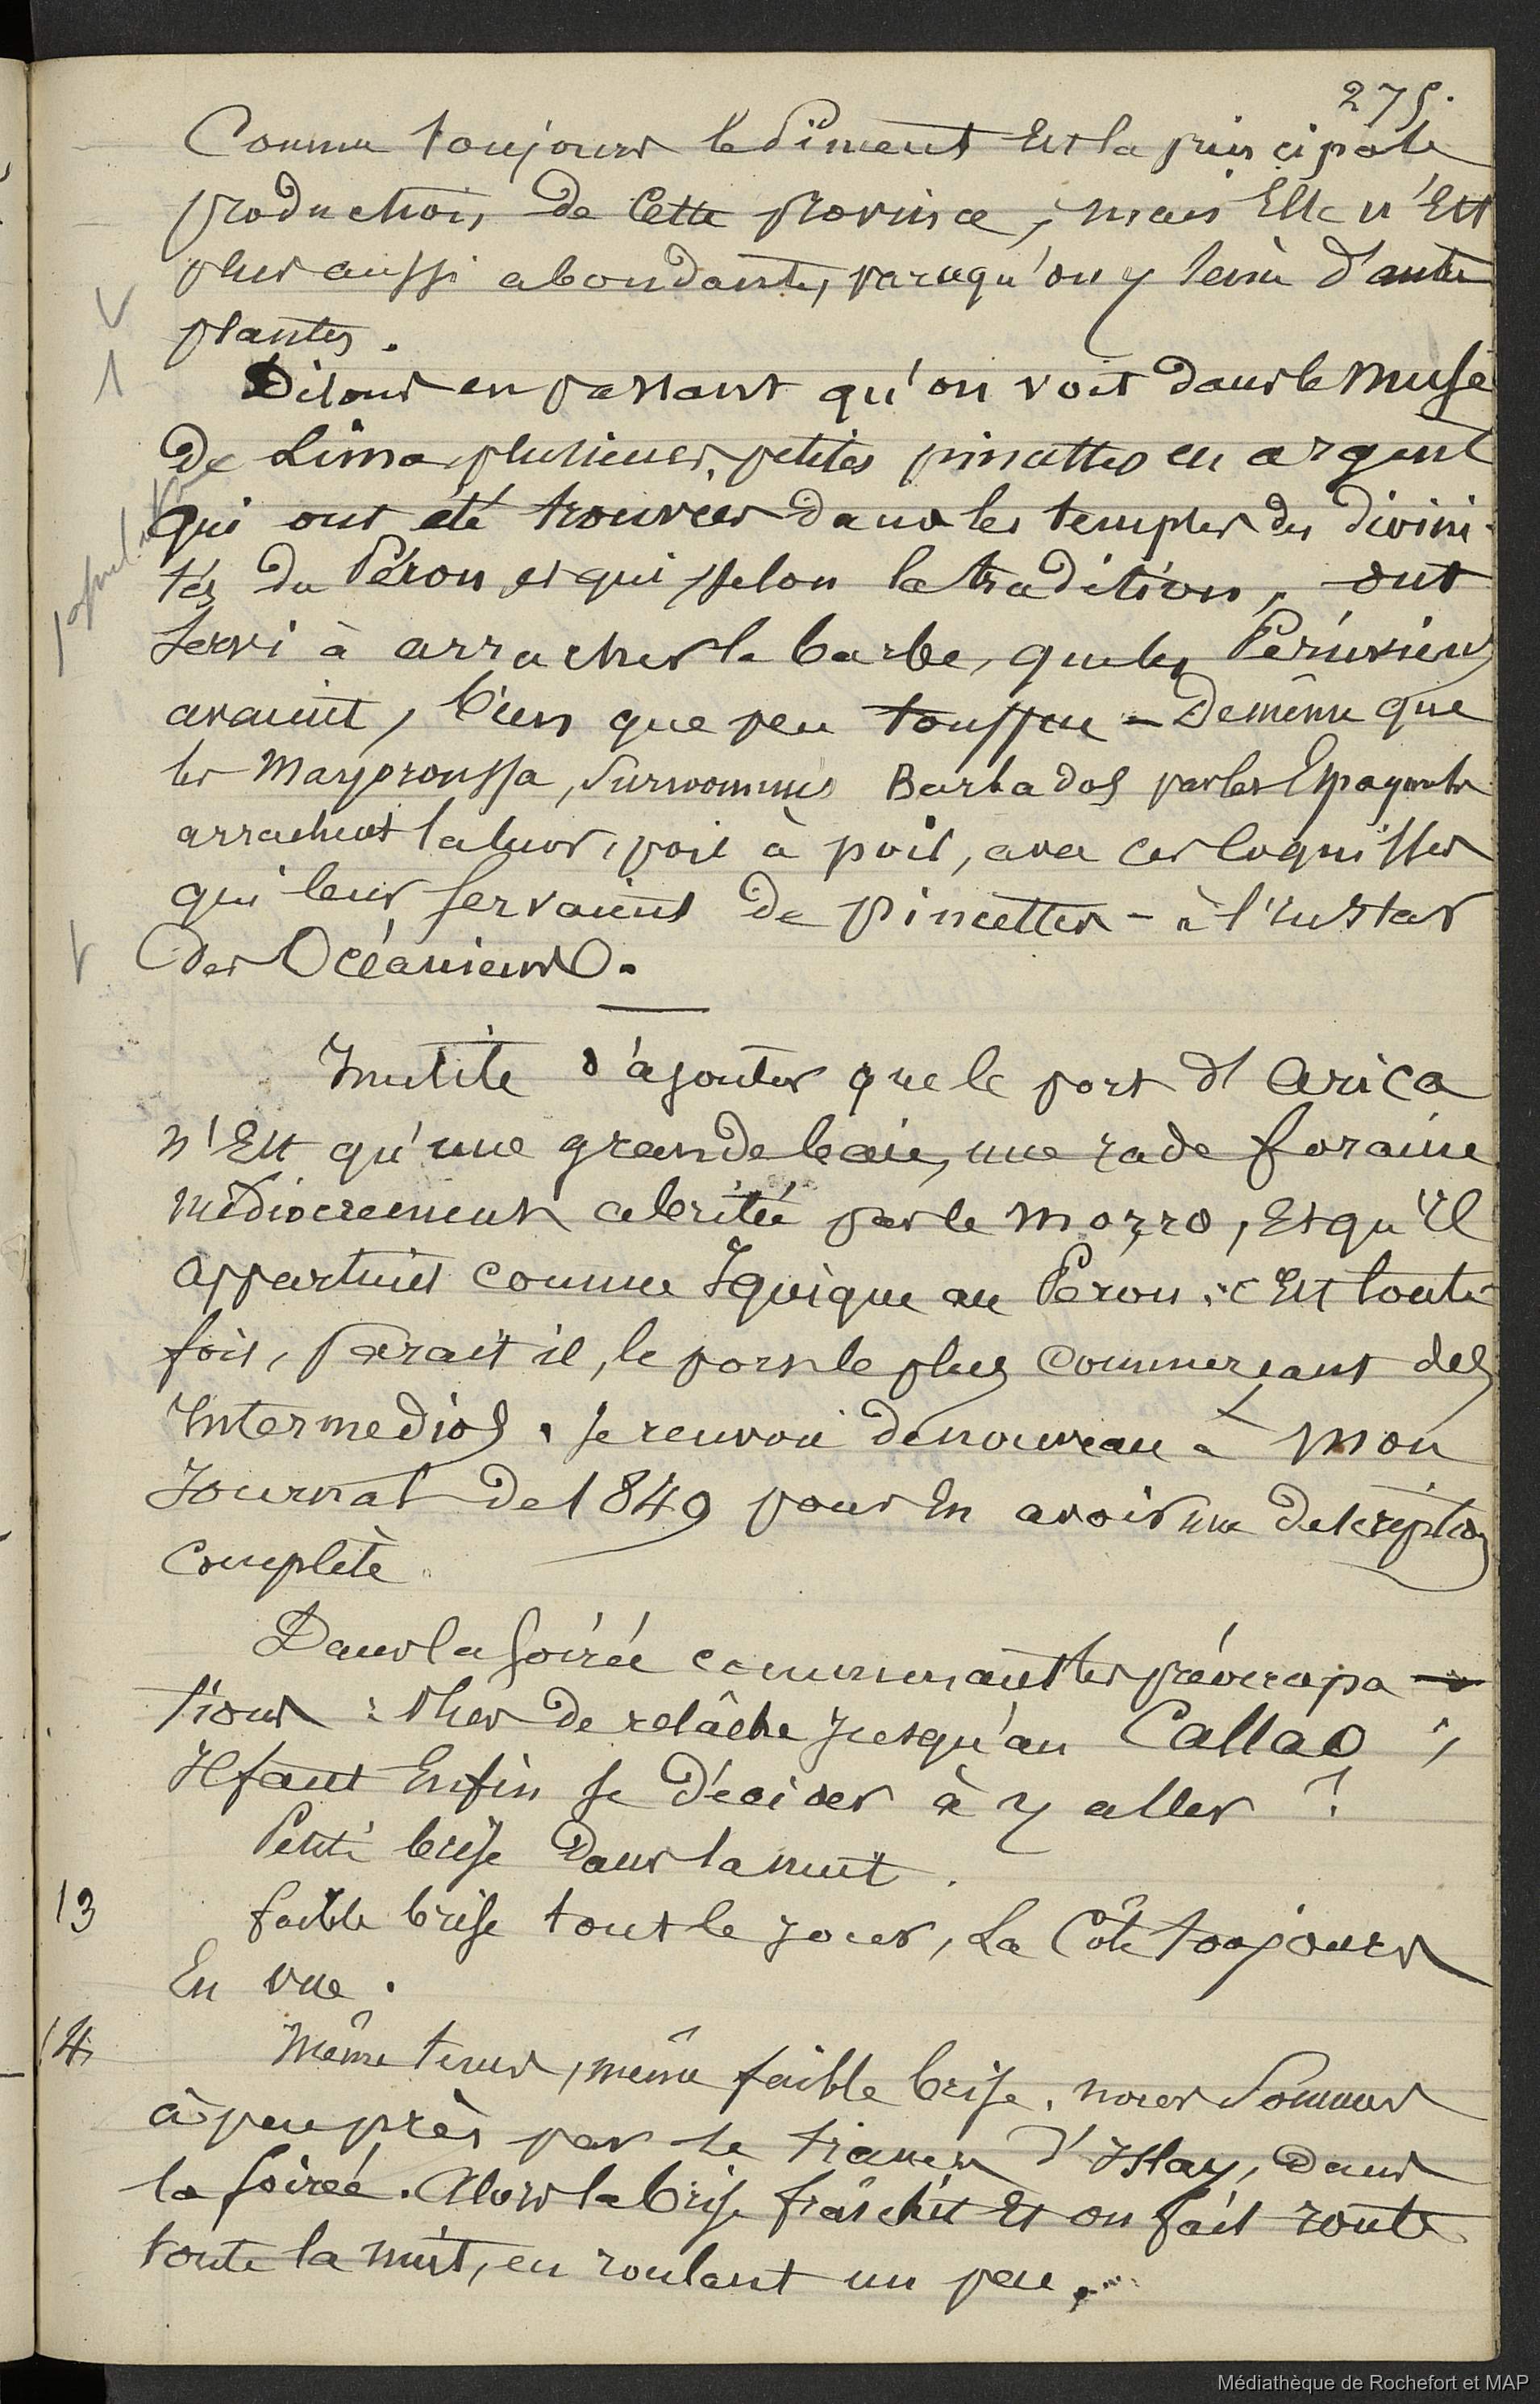 275.
Comme toujours le Piment Est la principale
production, de Cette province, mais Elle n'Est
plus aussi abondante, parcequ'on y sème d'autre
plantes.
Disons en passant qu'on voit dans le Musé
De Lima plusieurs petites pincettes en argent
qui ont été trouvées dans les temples des divini-
tés du Pérou et qui, selon la tradition, ont
servi à arracher la barbe, que les Péruviens
avaient, bien que peu touffue - De même que
les Mayoroussa, surnommés Barbados par les Espagnols
arrachent la leur, poil à poil, avec ces coquilles
qui leur servaient de pincettes - à l'instar
(des Océaniens).
Inutile d'ajouter que le port d'Arica
n'Est qu'une grande baie, une rade foraine
médiocrement abritée par le Morro, Et qu'Il
appartient comme Iquique au Pérou. c'Est toute-
fois, parait il, le port le plus Commerçant des
Intermedios. Je renvoie de nouveau à Mon
Journal de 1849 pour En avoir une description
Complète
Dans la soirée commencent les préoccupa-
tions : Plus de relâche jusqu'au Callao ;
Il faut Enfin se décider à y aller !
Petite brise Dans la nuit.
13
faible brise tout le jour, La Côte toujours
En vue.
14
Même tems, même faible brise. nous Sommes
à peu près par le travers d'Islay, Dans
la soirée. Alors la brise fraîchit Et on fait route
toute la nuit, en roulant un peu.
Médiathèque de Rochefort et MAP